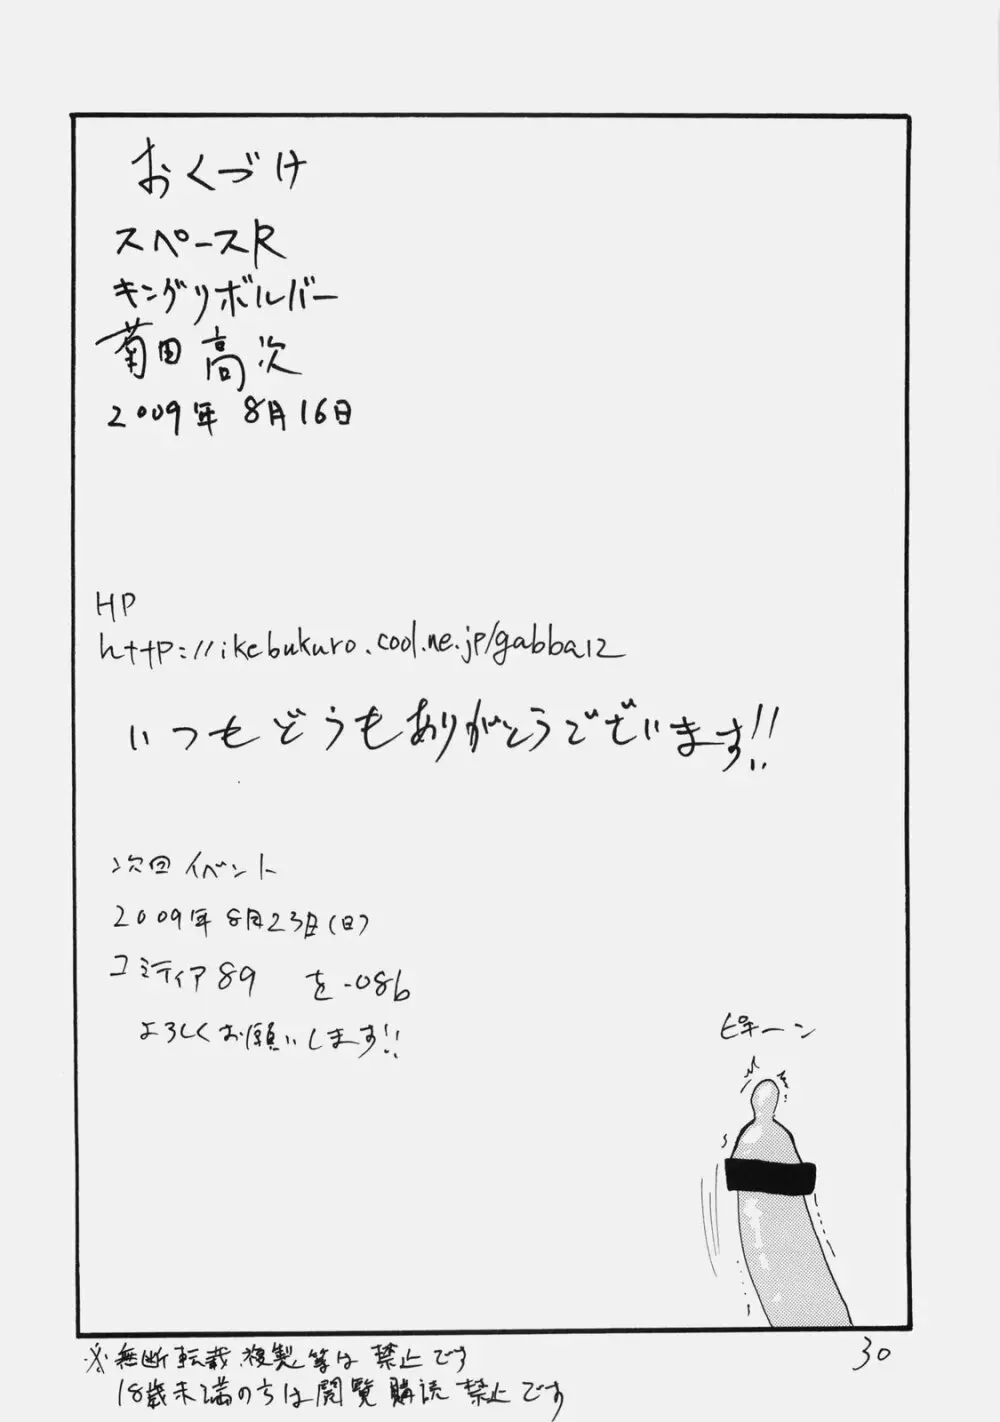 おくづけ
スペースR
キングリボルバー
菊田高次
2009年8月16日
HP
http://ikebukuro.cool.ne.jp/gabba12
いつもどうもありがとうでぜいます!!
次回イベント
2009年8月23日(日)
コミティア89 を-08b
よろしくお願いします!!
ピキーン
30
※無断転載、複製等は禁止です
18歳未満の方は閲覧購読禁止です